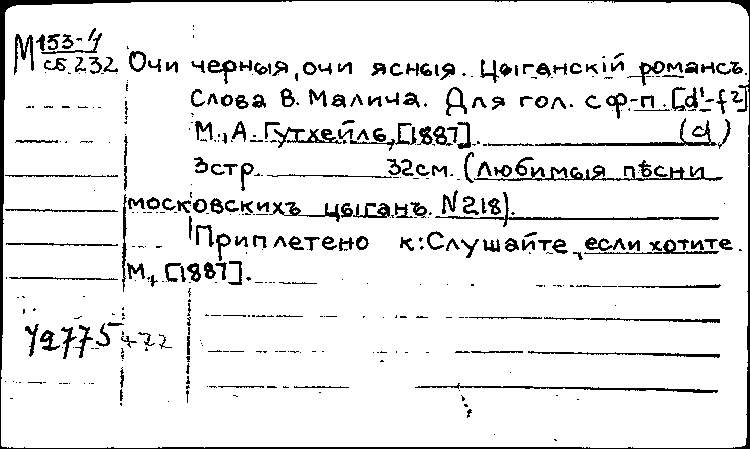 М 153-4
сб.232 Очи черныя, очи ясныя. Цыганскій романсъ.
Слова В. Малича. Для гол. с ф-п. [d¹-f²]
М., А. Гутхейль, [1887]. (d)
3стр 32см. (Любимыя пѣсни
московскихъ цыганъ. N218).
Приплетено к: Слушайте, если хотите.
М., [1887].